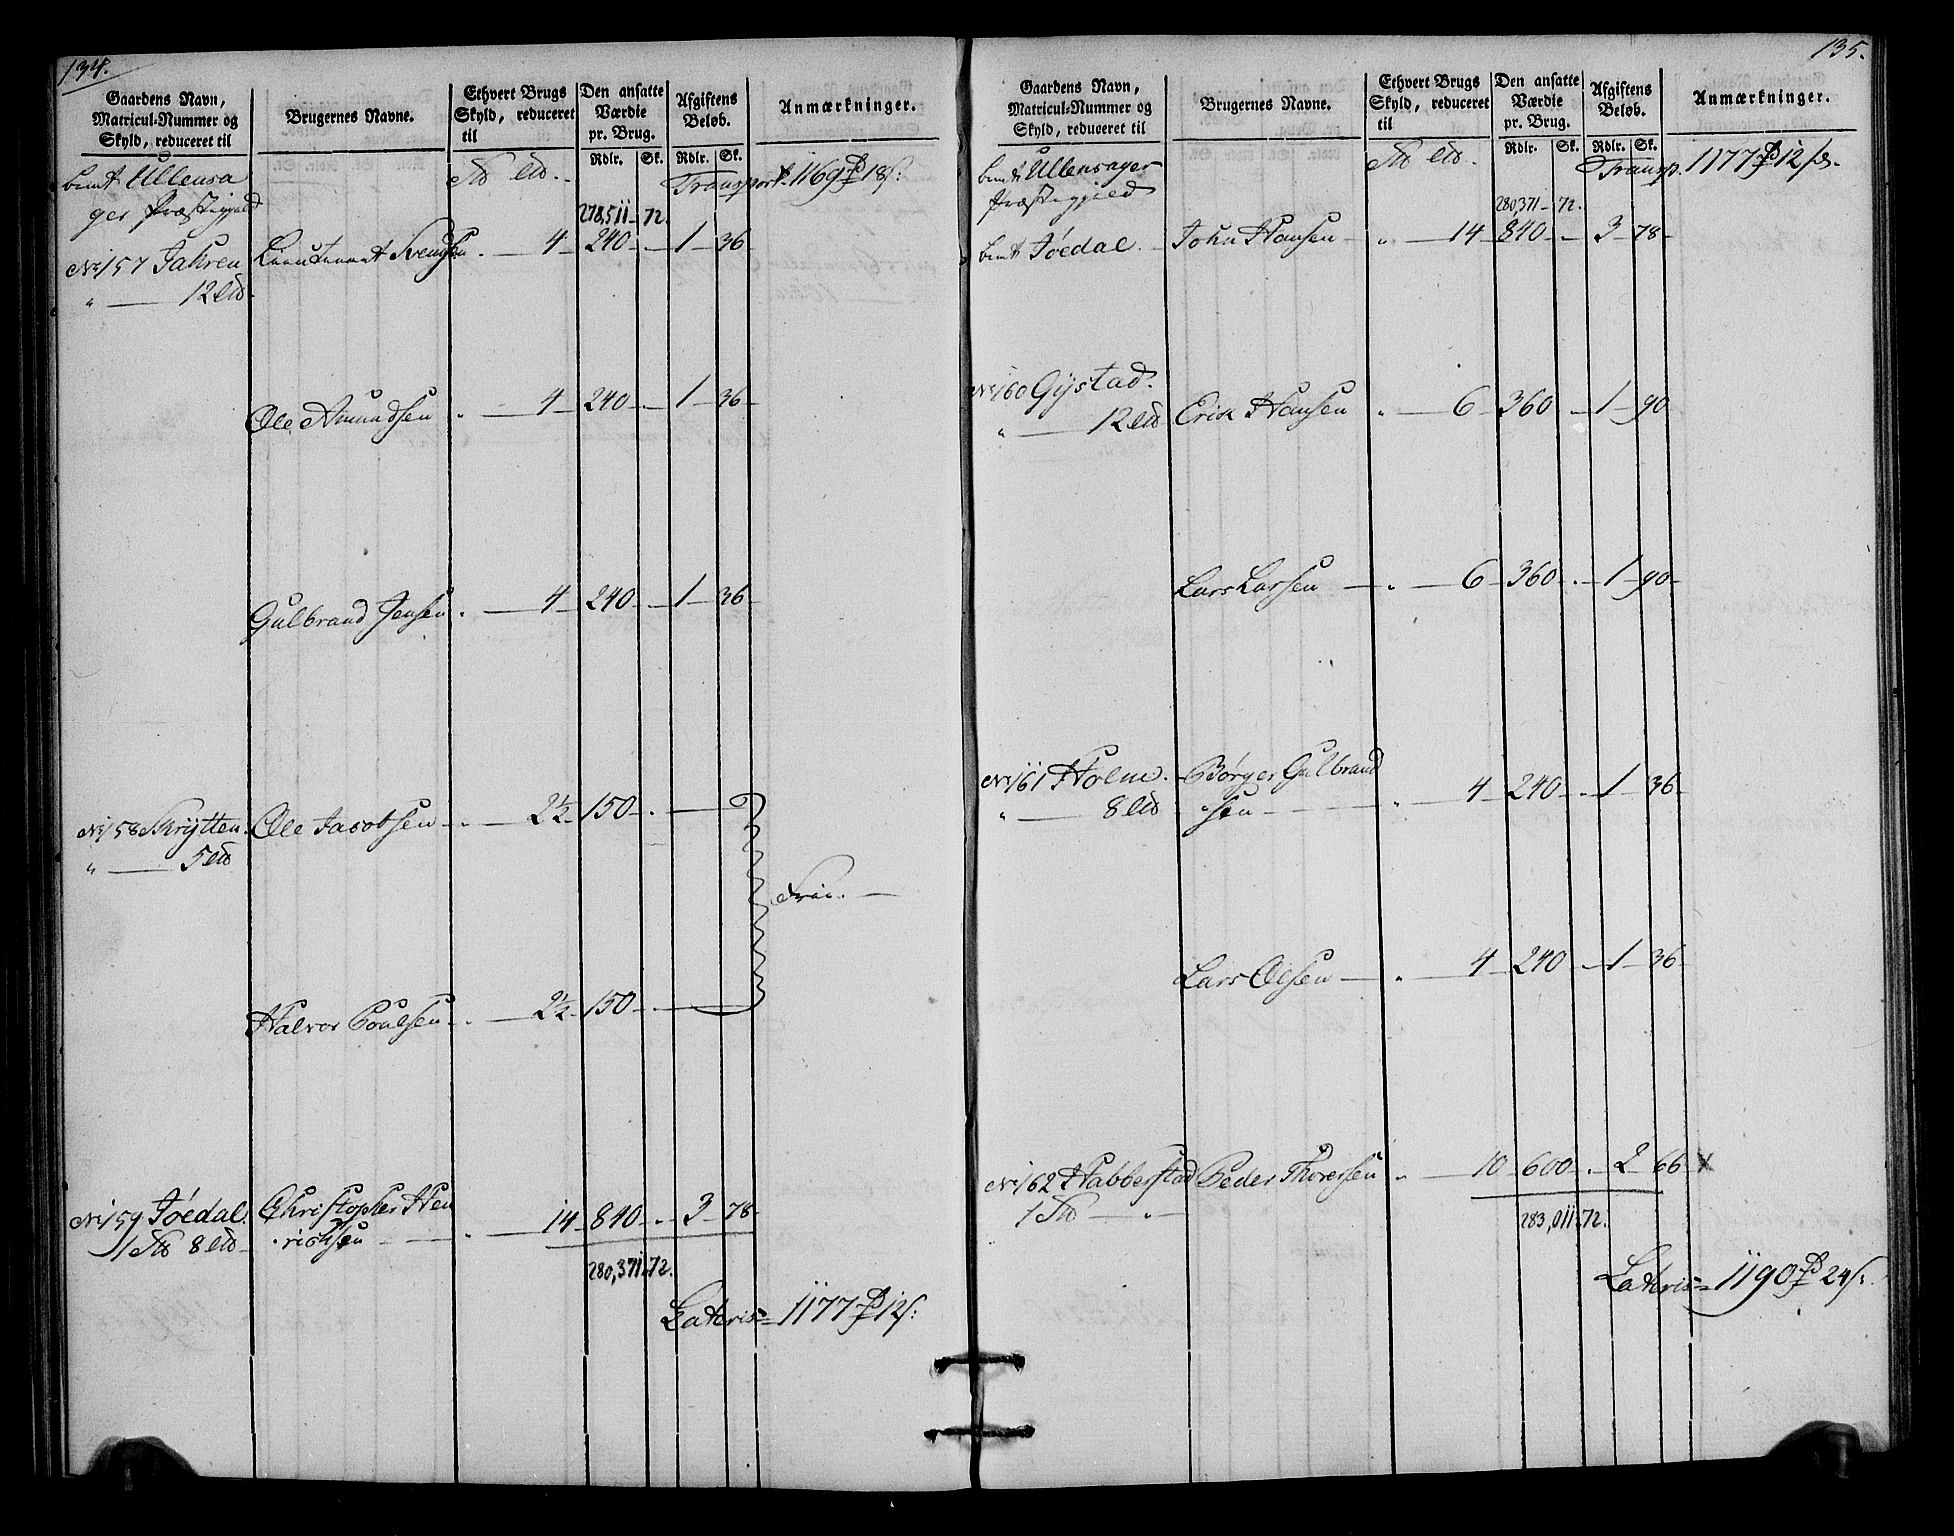 134.
Gaardens Navn, Matricul-Nummer og Skyld, reduceret til
Brugernes Navne.
Ethvert Brugs Skyld, reduceret til
Den ansatte Værdie pr. Brug.
Rdlr. Sk.
Afgiftens Beløb.
Rdlr. Sk.
Anmærkninger.
bemt Ullensa
ger Præstegjeld
Transport 1169 18 s:
278,511 - 72.
No 157 Jahren Lieutenant Svendsen . 4 - 240 - . - 1 - 36
" 12 Lld
Ole Amundsen " 4 - 240 - . - 1 - 36 -
Gulbrand Jensen . 4 - 240 - . - 1 - 36 -
No 158 Skrytten. Ole Jacobsen . 2½ - 150 - .
" 5 Lld
Frie.
Halvor Poulsen . 2½ - 150 - .
No 159 Jöedal. Christopher Hen
1 8 richsen " 14 - 840 - . - 3 - 78 -
280,371 - 72.
Lateris = 1177 12 s:
135.
Gaardens Navn, Matricul-Nummer og Skyld, reduceret til
Brugernes Navne.
Ethvert Brugs Skyld, reduceret til
Den ansatte Værdie pr. Brug.
Rdlr. Sk.
Afgiftens Beløb.
Rdlr. Sk.
Anmærkninger.
bemt Ullensager
Præstegjeld
Transp. 1177 12
280,371 - 72.
bemt Jöedal. John Hansen " 14 - 840 - . - 3 - 78 -
No 160 Gystad.
" 12 Lld Erik Hansen " 6 - 360 . - 1 - 90
Lars Larsen " 6 - 360 - . - 1 - 90 -
No 161 Holm. Börger Gulbrand
" 8 Lld sen " 4 - 240 - . - 1 - 36 -
Lars Olsen " 4 - 240 . - 1 - 36 -
No 162 Habberstad Peder Thoresen " 10 - 600 - . - 2 - 66 x
1 "
283,011 - 72.
Lateris = 1190 24 s: